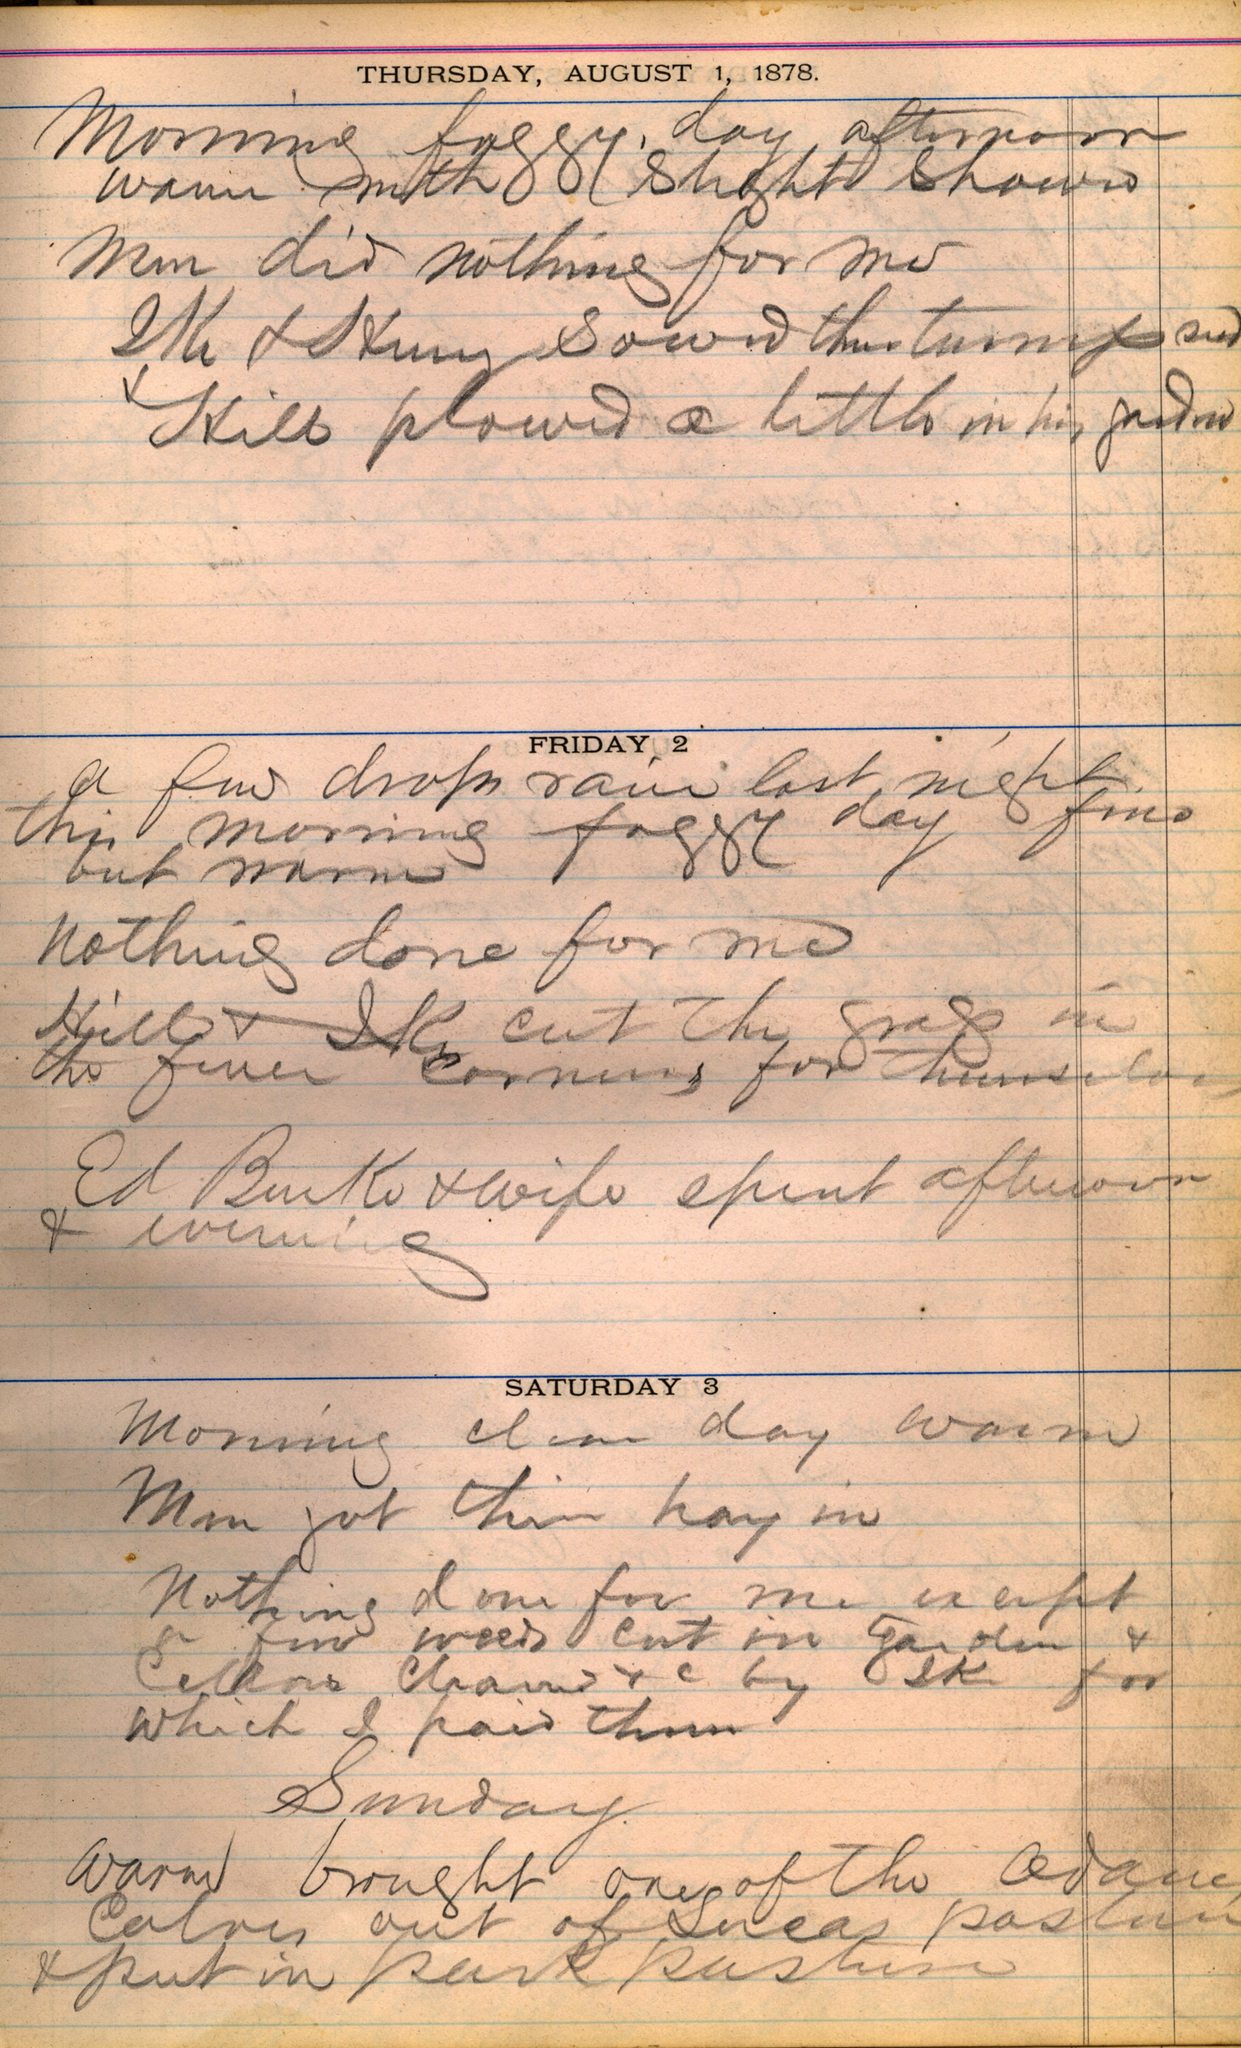 THURSDAY, AUGUST 1, 1878.
Morning foggy, day afternoon
warm with slight shower
Men did nothing for me
Ike & Henry Sowed their turnip seed
& Hill plowed a little in his garden
FRIDAY 2
a few drops rain last night
this morning foggy day fine
but warm
Nothing done for me
Hill & Ike cut the grass in
the fence corners for themselves
Ed Burke & wife spent afternoon
& evening
SATURDAY 3
Morning clear day warm
Men got their hay in
Nothing done for me except
a few weeds cut in garden &
Cellar cleaned &c by Ike for
which I paid them
Sunday
Warm brought one of the
Calves out of Lucas pasture
& put in park pasture